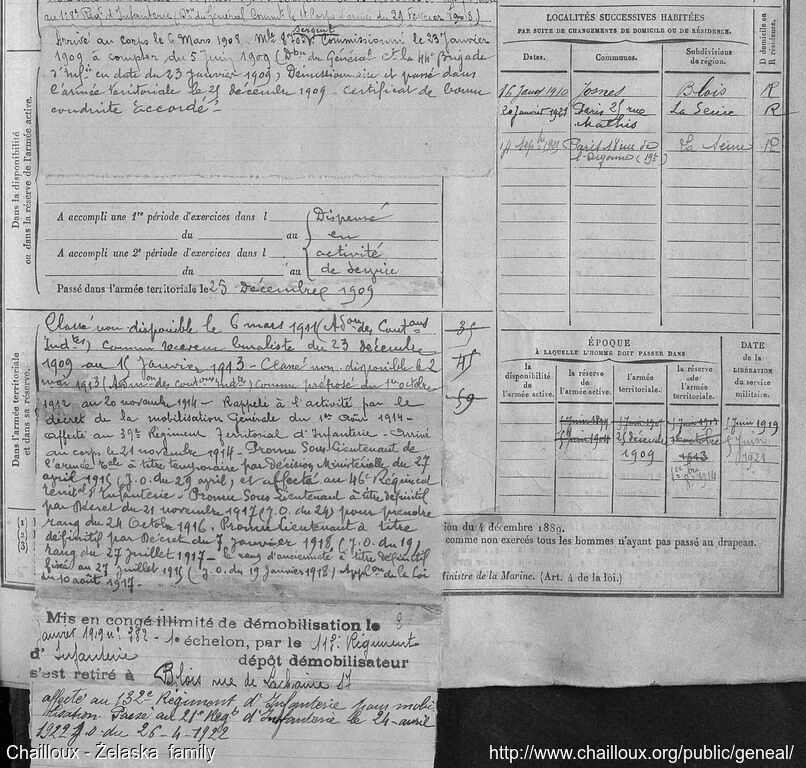 au 113e Régt d'Infanterie (Don du Général Commt le 11e Corps d'armée du 29 Février 1908)
sergent
Arrivé au corps le 6 Mars 1908. Commissionné le 23 Janvier
1909 à compter du 5 Juin 1909 (Don du Général Ct la Brigade
d'Infie en date du 23 Janvier 1909) Démissionnaire et passé dans
l'armée territoriale le 25 décembre 1909. Certificat de bonne
conduite Accordé
Dans la disponibilité
ou dans la réserve de l'armée active.
A accompli une 1re période d'exercices dans l
du au
A accompli une 2e période d'exercices dans l
du au
Dispensé
en
activité
de service
Passé dans l'armée territoriale le 25 Décembre 1909
Dans l'armée territoriale
et dans sa réserve.
Classé non disponible le 6 mars 1911 (Adon des Contons
Indtes) comme receveur buraliste du 23 décembre
1909 au 15 Janvier 1913 - Classé non disponible le 2
mai 1913 (Admon des contons Indtes) comme préposé du 1er octobre
1912 au 20 novembre 1914 - Rappelé à l'activité par le
décret de la mobilisation Générale du 1er Août 1914 -
affecté au 39e Régiment Territorial d'Infanterie - Arrivé
au corps le 21 novembre 1914 - Promu Sous Lieutenant de
l'armée Tale à titre temporaire par Décision Ministérielle du 27
avril 1915 (J.O. du 29 avril) et affecté au 46e Régiment
territal d'Infanterie - Promu Sous Lieutenant à titre définitif
par Décret du 21 novembre 1917 (J.O. du 24) pour prendre
rang du 24 Octobre 1916. Promu lieutenant à titre
définitif par Décret du 7 janvier 1918 (J.O. du 19)
rang du 27 juillet 1917 - le rang d'ancienneté à titre définitif
fixé au 27 juillet 1915 (J.O. du 19 Janvier 1918) Applon de la Loi
du 10 août 1917 -
Mis en congé illimité de démobilisation le 2
janvier 1919 no 382 - 1e échelon, par le 113e Régiment
d'Infanterie dépôt démobilisateur
s'est retiré à Blois rue de
affecté au 132e Régiment d'Infanterie pour mobi
lisation. Passé au 21e Regt d'Infanterie le 24 avril
1922 J.O. du 26-4-1922
LOCALITÉS SUCCESSIVES HABITÉES
PAR SUITE DE CHANGEMENTS DE DOMICILE OU DE RÉSIDENCE.
Dates. Communes. Subdivisions de région. D domicile ou R résidence.
16 Janvr 1910 Josnes Blois R
20 Janvier 1921 Paris 25 rue Mathis La Seine R
14 Sepbre 1925 Paris 18 rue de l'Argonne (19e) La Seine R
35
45
59
ÉPOQUE
À LAQUELLE L'HOMME DOIT PASSER DANS
la disponibilité de l'armée active.
la réserve de l'armée active.
l'armée territoriale.
la réserve de l'armée territoriale.
DATE
de la
LIBÉRATION
du service
militaire.
1 Juin 1919
25 décembre
1909
1913
1 Juin
1921
tion du 4 décembre 1889.
comme non exercés tous les hommes n'ayant pas passé au drapeau.
Ministre de la Marine. (Art. 4 de la loi.)
Chailloux - Żelaska family
http://www.chailloux.org/public/geneal/